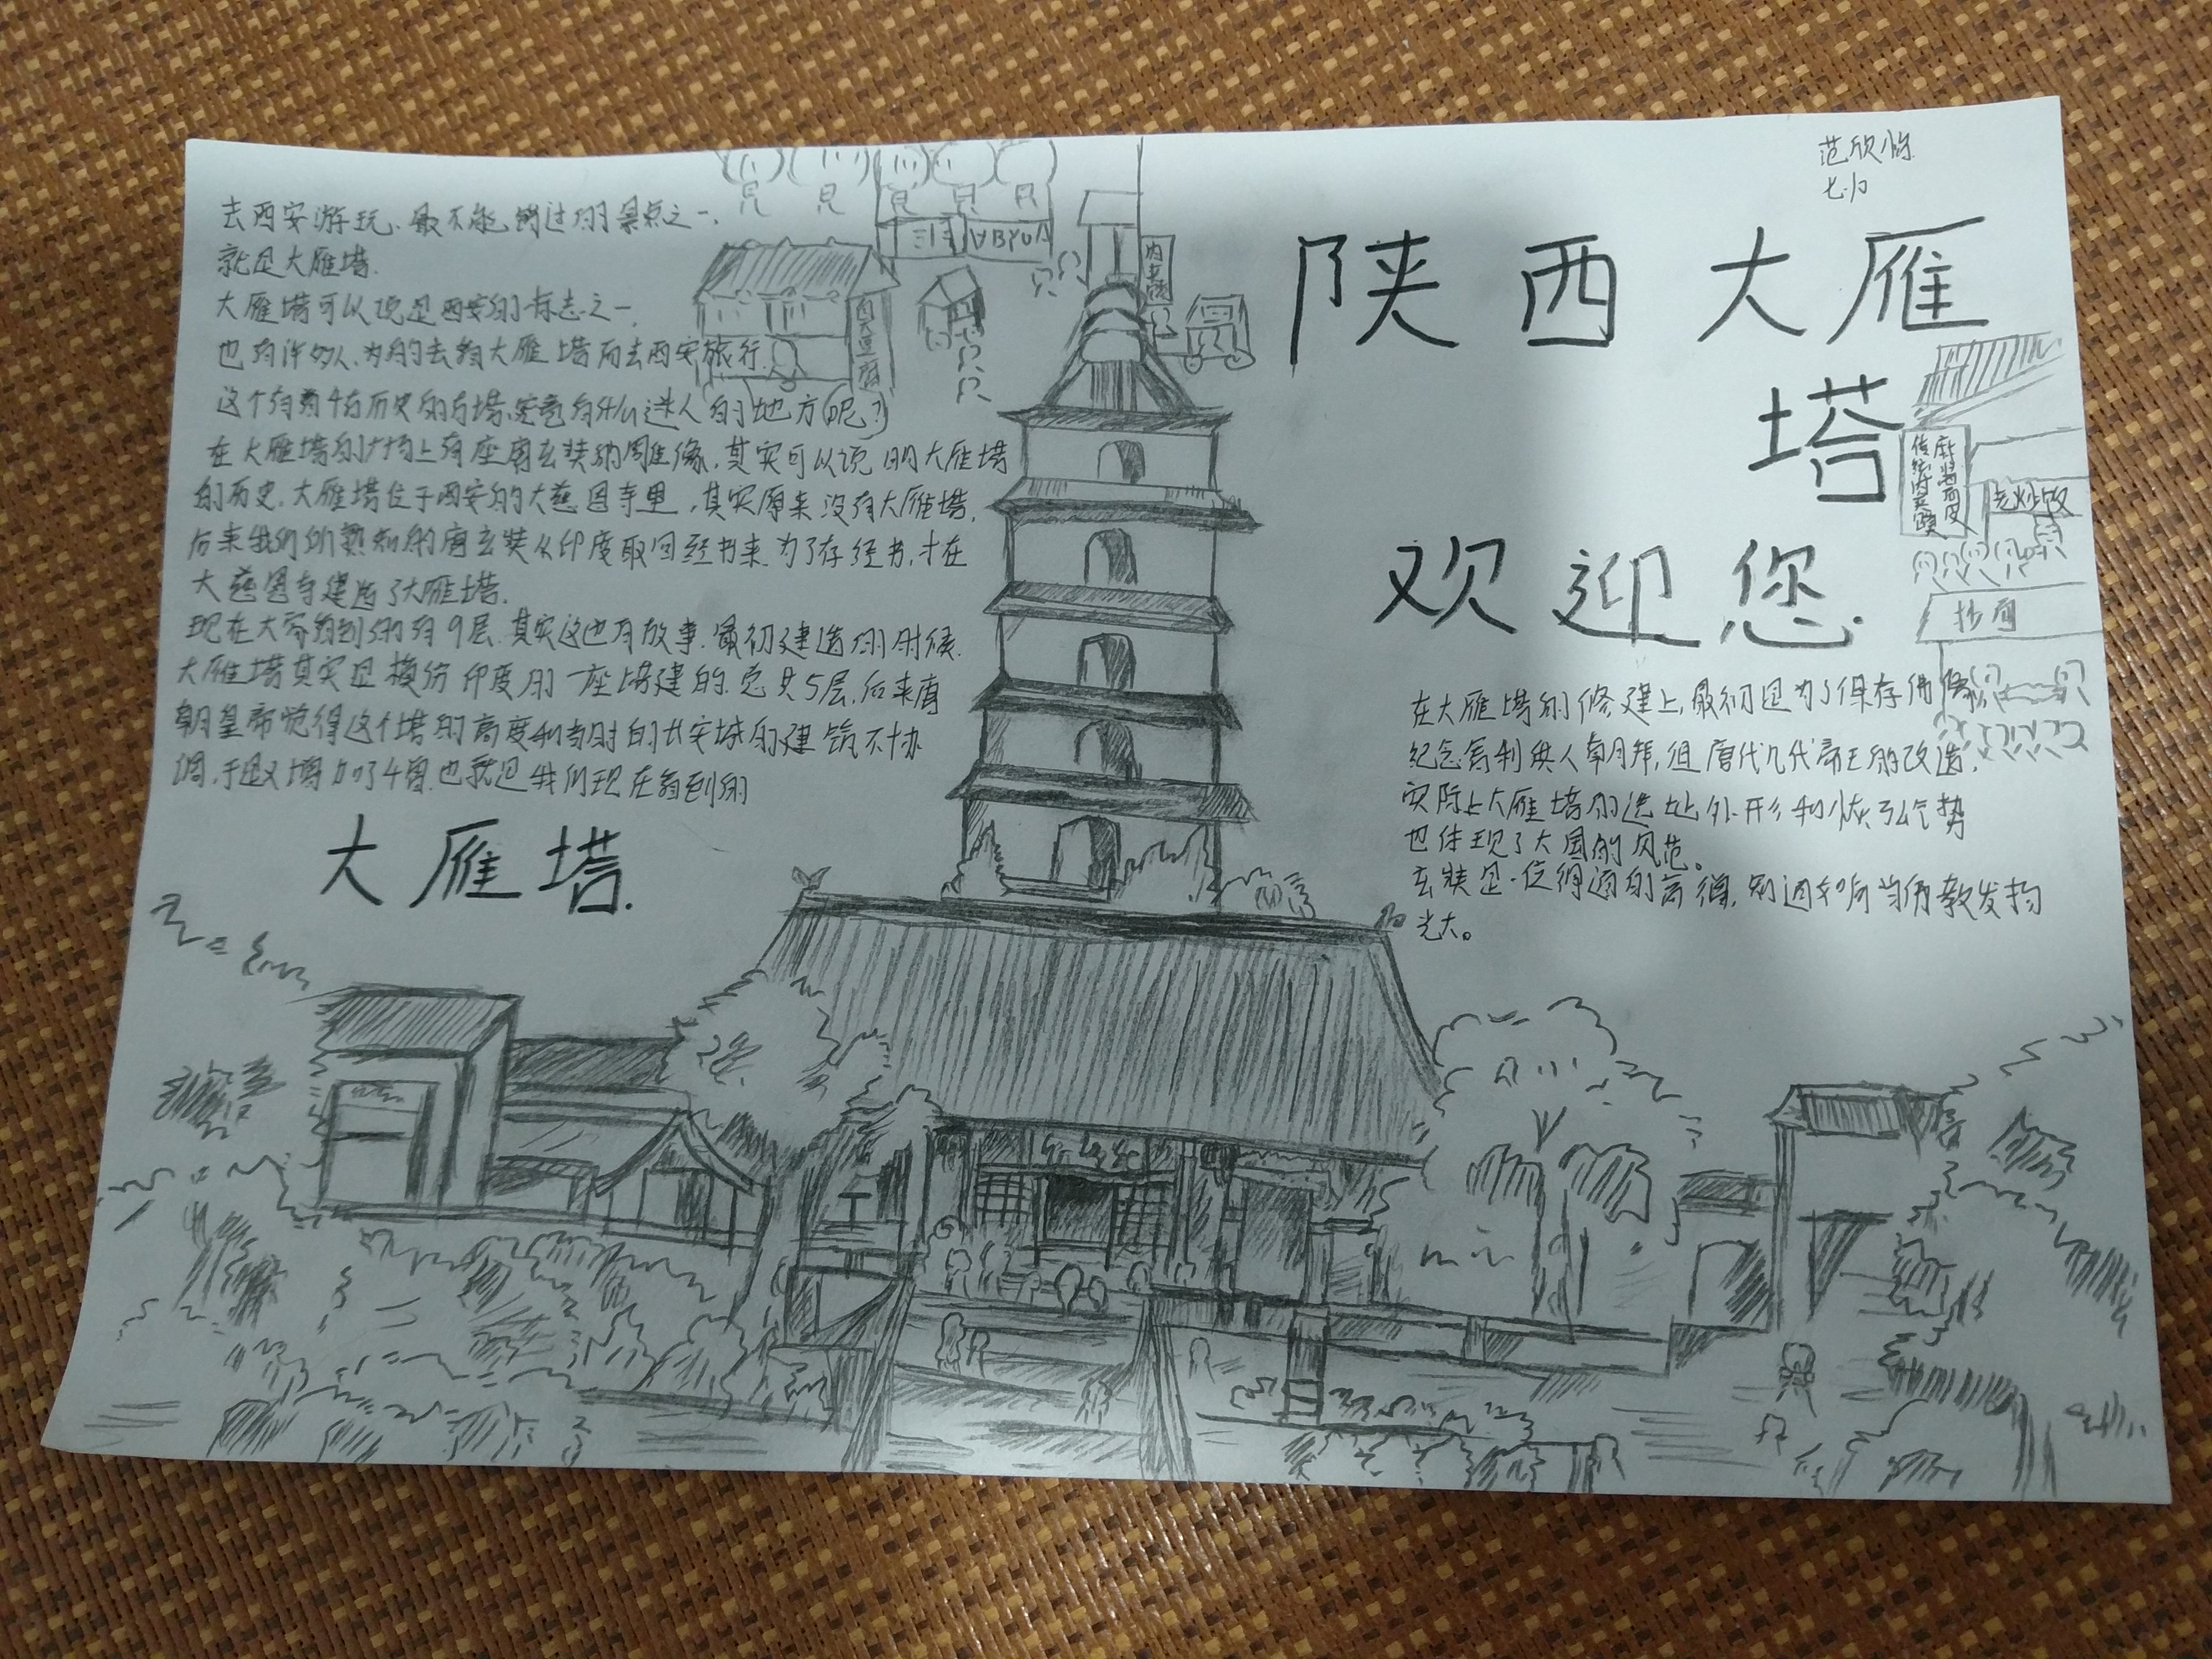 去西安游玩、最不能错过的景点之一,
就是大雁塔.
大雁塔可以说是西安的标志之一,
也有许多人、为的去看大雁塔而去西安旅行.
这个有着千古历史的古塔、究竟有什么迷人的地方呢?
在大雁塔的广场上有座唐玄奘的雕像,其实可以说明大雁塔
的历史.大雁塔位于西安的大慈恩寺里,其实原来没有大雁塔,
后来我们所熟知的唐玄奘从印度取回经书来.为了存经书,才在
大慈恩寺建造了大雁塔.
现在大家看到的有9层.其实这也有故事.最初建造的时候.
大雁塔其实是模仿印度的一座塔建的.总共5层.后来唐
朝皇帝觉得这个塔的高度和当时的长安城的建筑不协
调,于是又增加了4层.也就是我们现在看到的
大雁塔.
范欣
七.
陕西大雁
塔
欢迎您.
在大雁塔的修建上,最初是为了保存佛像,
纪念舍利供人朝拜,但唐代几代帝王的改造,
实际上大雁塔的选址外形和恢弘气势
也体现了大国的风范。
玄奘是一位得道的高僧,
当佛教发扬
光大。
麻酱面皮
炒饭